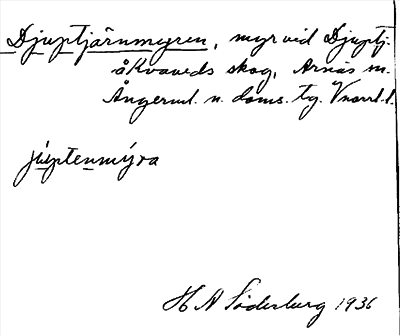 Djuptjärnmyren, myr vid Djuptj.
å Kvaveds skog, Arnäs sn.
Ångerml. n. doms. tg. Vnorrl. l.
júptenmýra
H A Söderberg 1936